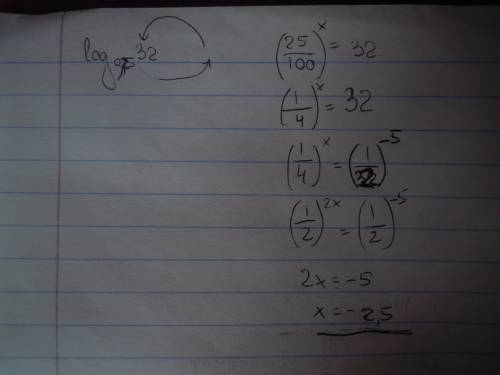 log₀,₂₅ 32
(25/100)^x = 32
(1/4)^x = 32
(1/4)^x = (1/2)^-5
(1/2)^2x = (1/2)^-5
2x = -5
x = -2,5